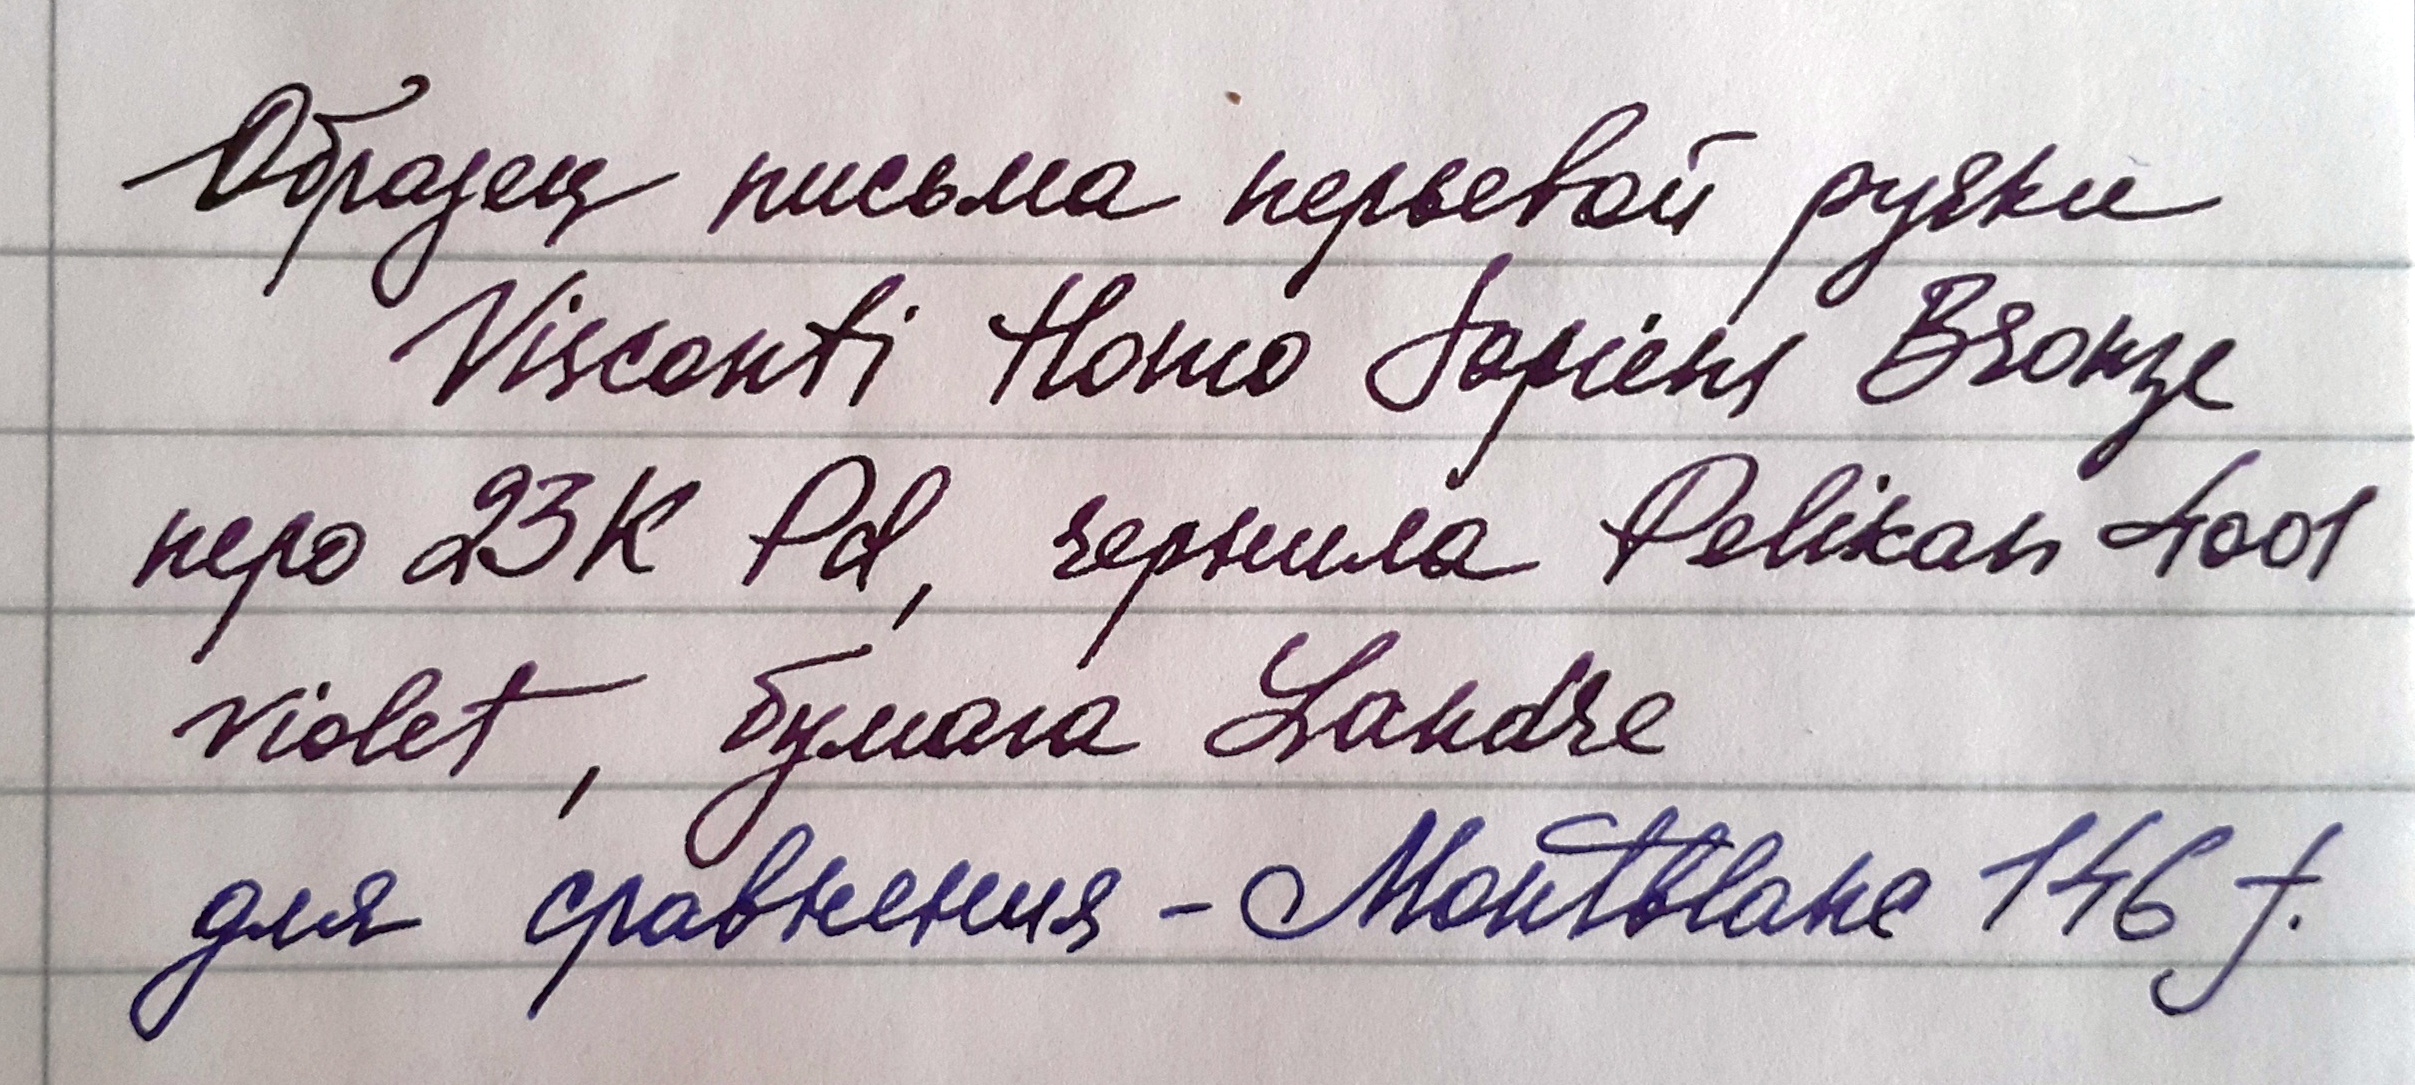 Образец письма перьевой ручки
Visconti Homo Sapiens Bronze
перо 23K Pd, чернила Pelikan 4001
violet, бумага Landre
для сравнения - Montblanc 146 f.